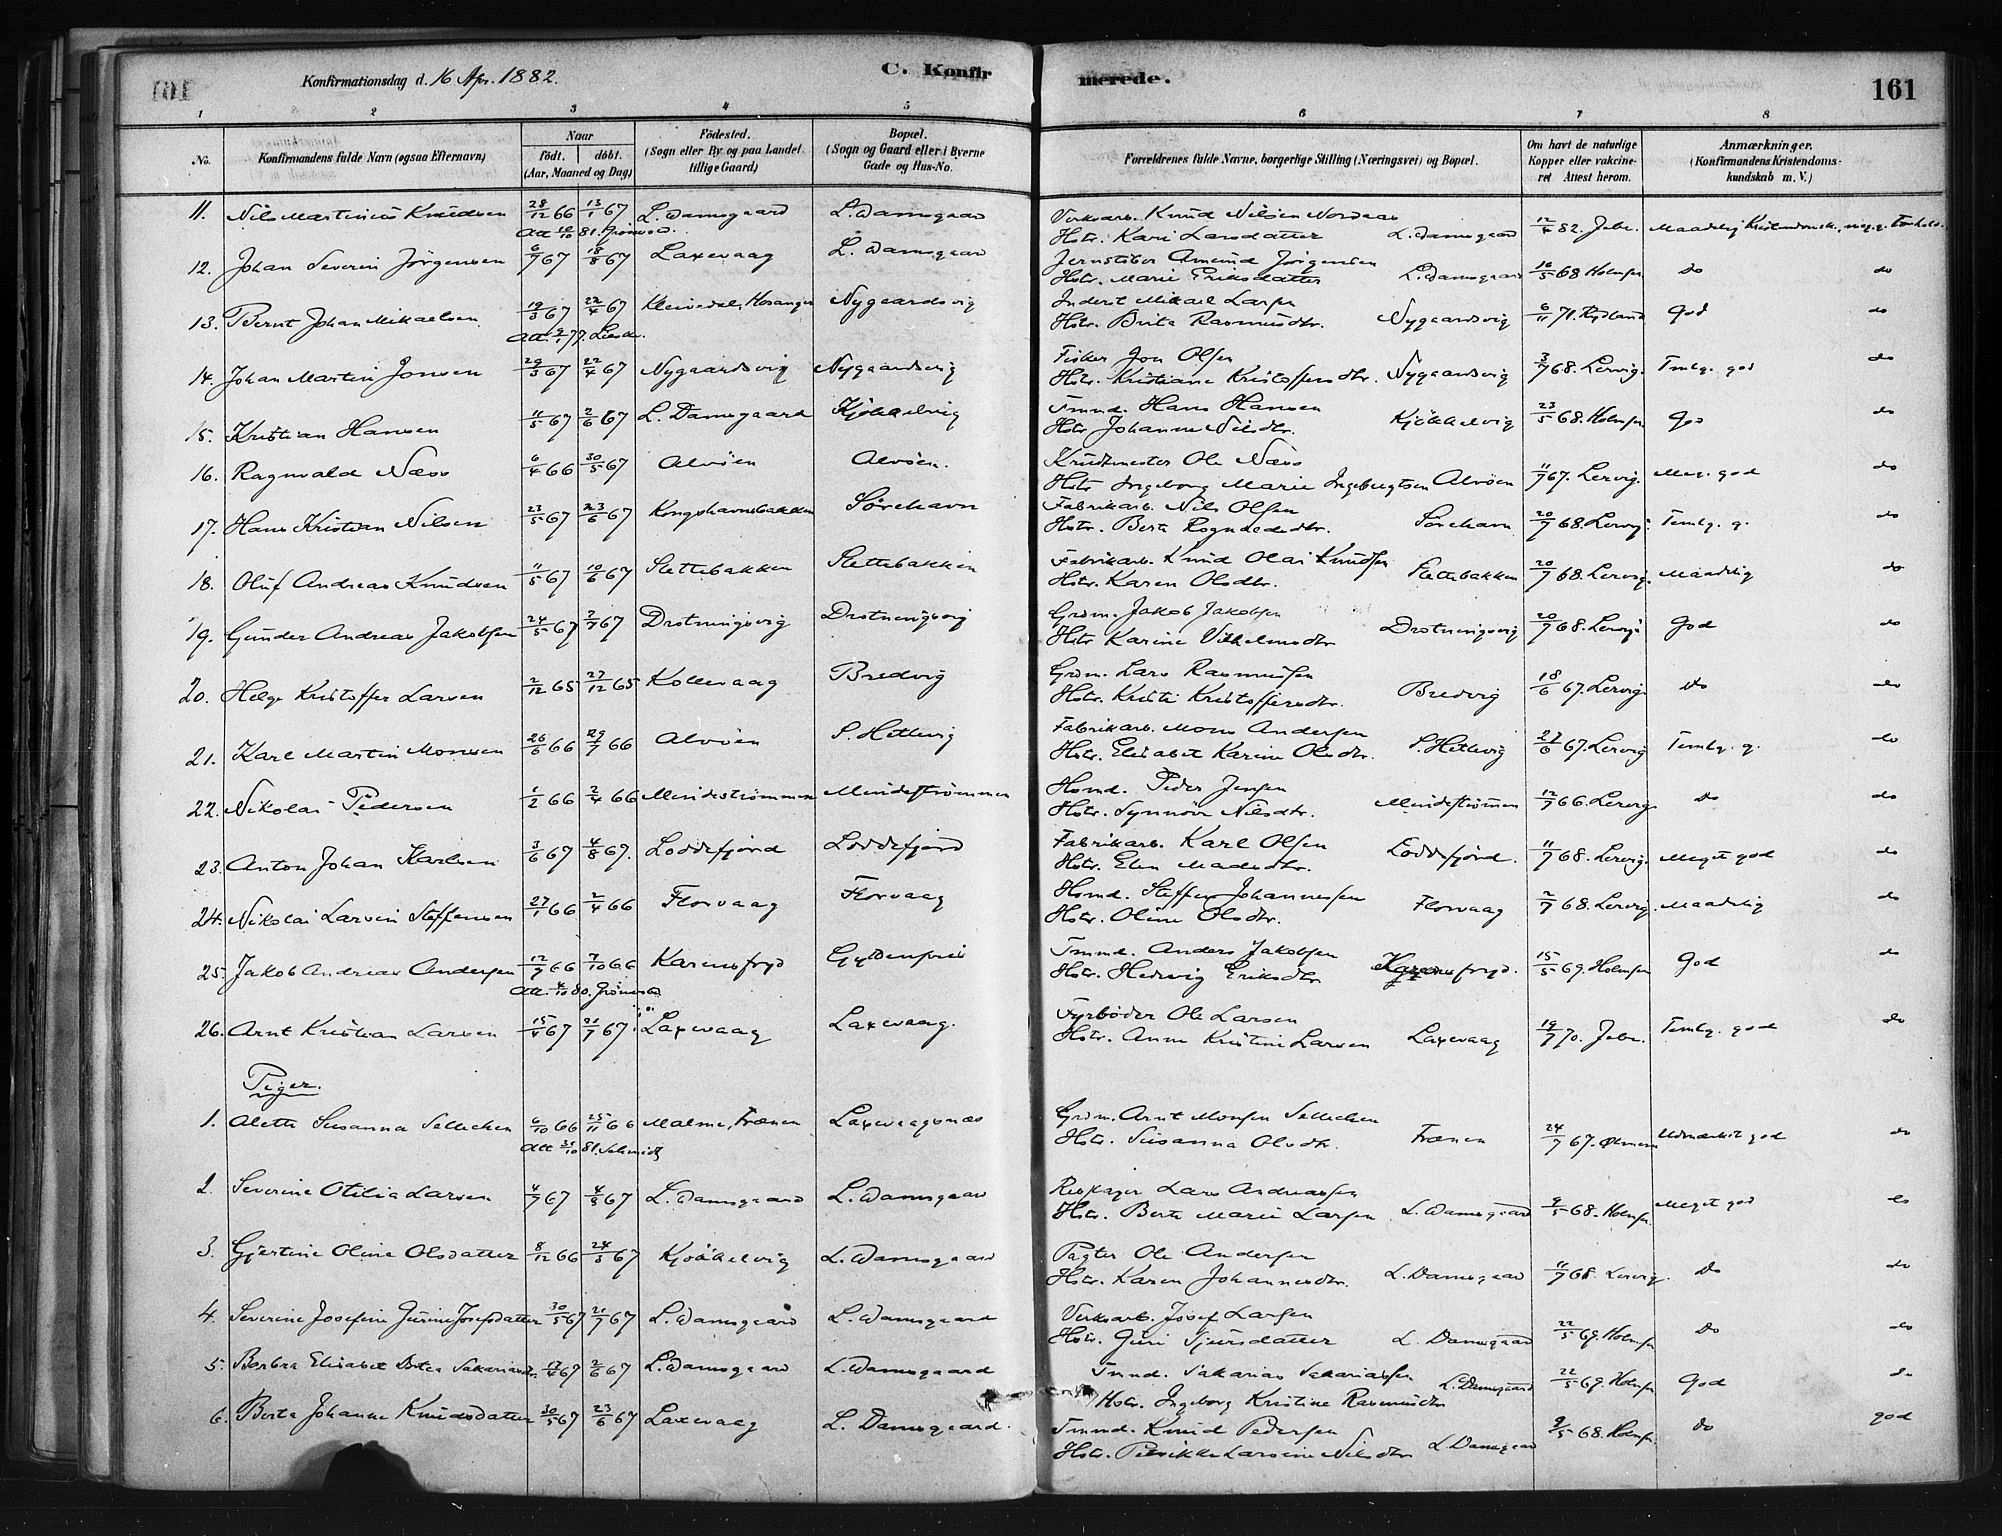 Konfirmationsdag d. 16 Apr. 1882.
C. Konfirmerede.
161
1 2 3 4 5 6 7 8
No.
Konfirmandens fulde Navn (ogsaa Efternavn)
Naar
födt. döbt.
(Aar, Maaned og Dag)
Födested.
(Sogn eller By og paa Landet
tillige Gaard)
Bopæl.
(Sogn og Gaard eller i Byerne
Gade og Hus-No.
Forældrenes fulde Navne, borgerlige Stilling (Næringsvei) og Bopæl.
Om havt de naturlige
Kopper eller vakcine-
ret Attest herom.
Anmærkninger.
(Konfirmandens Kristendoms-
kundskab m. V.)
11. Nils Martinius Knudsen 28/12 66 13/1 67 L. Damsgaard L. Damsgaard Verksarb. Knud Nilsen Nordaas
Hstr. Kari Larsdatter L. Damsgaard 12/4 82.
12. Johan Severin Jörgensen 6/7 67 18/8 67 Laxevaag L. Damsgaard Jernstöber Amund Jörgensen
Hstr. Marie Eriksdatter L. Damsgaard 10/5 68 Holmsen do do
13. Bernt Johan Mikaelsen 19/3 67 22/4 67 Kleivedal, Hosanger Nygaardsvig Inderst Mikael Larsen
Hstr. Brita Rasmusdtr. Nygaardsvig 6/11 71. Rydland God do
14. Johan Martin Jonsen 29/3 67 22/4 67 Nygaardsvig Nygaardsvig Fisker Jon Olsen
Hstr. Kristiane Kristoffersdtr. Nygaardsvig 3/7 68. Lervig. Temlg. god do
15. Kristian Hansen 11/5 67 2/6 67 L. Damsgaard Kjökkelvig Tmmd. Hans Hansen
Hstr Johanne Nilsdtr. Kjökkelvig 23/5 68. Holmsen God do
16. Ragnvald Næss 6/4 66 30/5 67 Alvöen Alvöen. Krudtmester Ole Næss
Hstr Ingeborg Marie Ingebrigtsen Alvöen 11/7 67. Lervig. Meg. god do
17. Hans Kristian Nilsen 23/5 67 23/6 67 Kongshavnsbakken Sörehavn Fabrikarb. Nils Olsen
Hstr. Berta Sörehavn 20/7 68. Lervig. Temlg. g. do
18. Oluf Andreas Knudsen 11/5 67 10/6 67 Slettebakken Slettebakken Fabrikarb. Knud Olai Knudsen
Hstr. Karen Olsdtr. Slettebakken 20/7 68. Lervig. Maadelig do
19. Gunder Andreas Jakobsen 24/5 67 7/7 67 Drotningsvig Drotningsvig Grdm. Jakob Jakobsen
Hstr Karine Vilhelmsdtr Drotningsvig 20/7 68. Lervig God do
20. Helge Kristoffer Larsen 2/12 65 27/12 65 Kollevaag Bredvig Grdm. Lars Rasmussen
Hstr. Kristi Kristoffersdtr. Bredvig 18/6 67. Lervig do do
21. Karl Martin Monsen 26/6 66 29/7 66 Alvöen S. Hetlevig Fabrikarb. Mons Andersen
Hstr. Elisabet Karine Olsdtr. S. Hetlevig 27/6 67. Lervig Temlg. g. do
22. Nikolai Pedersen 1/2 66 2/4 66 Mindeströmmen Mindeströmmen Hsmd. Peder Jensen
Hstr. Synnöve Nilsdtr. Mindeströmmen 12/7 66. Lervig do do
23. Anton Johan Karlsen 3/6 67 4/8 67. Loddefjord Loddefjord Fabrikarb. Karl Olsen
Hstr. Elen Madsdtr. Loddefjord. 11/7 68. Lervig. Meget god do
24. Nikolai Larsen Steffensen 27/1 66 2/4 66 Florvaag Florvaag Hsmd. Steffen Johannesen
Hstr. Oline Olsdtr. Florvaag 2/7 68. Lervig. Maadelig do
25. Jakob Andreas Andersen 12/7 66 7/10 66 Karensfryd Gyldenpris Tmmd. Anders Jakobsen
Hstr. Hedevig Eriksdtr Karensfryd. 15/5 69. Holmsen God do
26. Arnt Kristian Larsen 15/4 67 21/7 67 Laxevaag Laxevaag. Fyrböder Ole Larsen
Hstr. Anne Kristine Larsen Laxevaag 19/7 70. Temlg. god do
Piger.
1. Alette Susanna Sellechen 6/10 66 25/11 66 Malme, Frænen Laxevaagsnæs Grdm. Arnt Monsen Sellechen
Hstr. Susanna Olsdtr. Frænen 24/7 67. Udmærket god do
Att 31/10 81. Schmidt
2. Severine Otilia Larsen 4/7 67 4/8 67 L. Damsgaard L. Damsgaard Lars Andreassen
Hstr. Berte Marie Larsen L. Damsgaard 9/5 68. Holmsen Meget god do
3. Gjertine Oline Olsdatter 8/12 66 24/3 67 Kjökkelvig L. Damsgaard Pagter Ole Andersen
Hstr. Karen Johannesdtr. L. Damsgaard 11/7 68 Lervig. do do
4. Severine Josefine Gurine Josefsdatter 30/5 67 21/7 67 L. Damsgaard L. Damsgaard Verksarb. Josef Larsen
Hstr. Guri Sjursdatter L. Damsgaard 22/5 69. Holmsen do do
5. Berbra Elisabet Dortea Sakariasdtr. 17/4 67 2/6 67 L. Damsgaard L. Damsgaard Tmmd. Sakarias Sakariassen
Hstr. Ingeborg Kristine Rasmusdtr L. Damsgaard 22/5 69. Holmsen God do
6. Berta Johanne Knudsdatter 30/5 67 23/6 67 Laxevaag L. Damsgaard. Tmmd. Knud Pedersen
Hstr. Larsine Nilsdtr L. Damsgaard 9/5 68. Holmsen do god